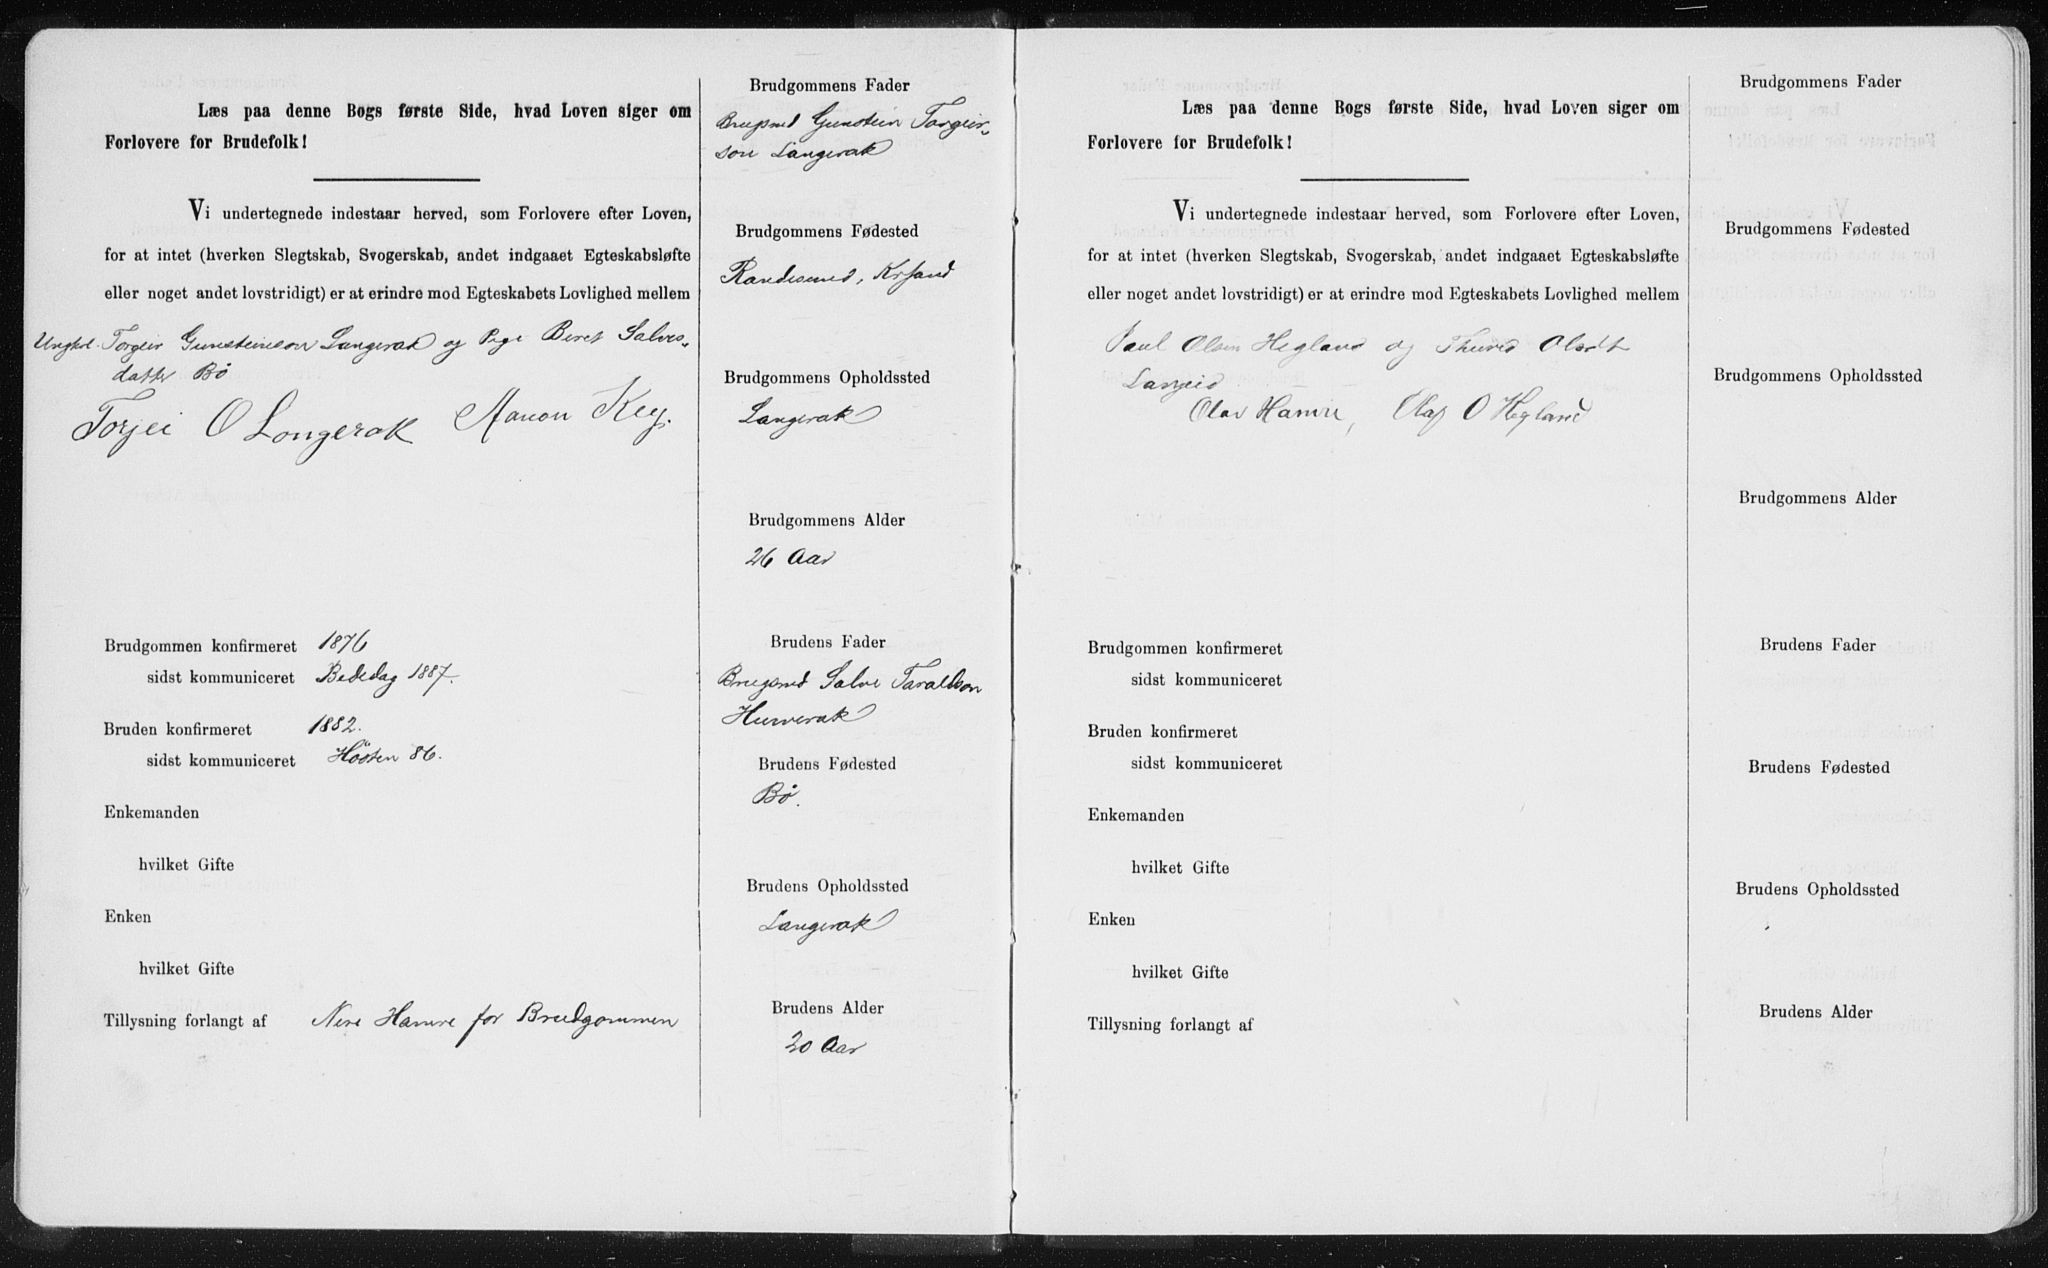 Læs paa denne Bogs første Side, hvad Loven siger om
Forlovere for Brudefolk!
Vi undertegnede indestaar herved, som Forlovere efter Loven,
for at intet (hverken Slegtskab, Svogerskab, andet indgaaet Egteskabsløfte
eller noget andet lovstridigt) er at erindre mod Egteskabets Lovlighed mellem
Ungkl. Torgeir Gunsteinson Langerak og Pige Beret Salves-
datter Bø
Torjei O Longerak Aanon Key.
Brudgommen konfirmeret 1876
sidst kommuniceret Bededag 1887.
Bruden konfirmeret 1882.
sidst kommuniceret Høsten 86.
Enkemanden
hvilket Gifte
Enken
hvilket Gifte
Tillysning forlangt af Nere Hamre for Brudgommen
Brudgommens Fader
Brugsmd Gunstein Torgeir-
son Langerak
Brudgommens Fødested
Randesund, Krsand
Brudgommens Opholdssted
Langerak
Brudgommens Alder
26 Aar
Brudens Fader
Brugsmd Salve Taraldson
Hurverak
Brudens Fødested
Bø.
Brudens Opholdssted
Langerak
Brudens Alder
20 Aar
Læs paa denne Bogs første Side, hvad Loven siger om
Forlovere for Brudefolk!
Vi undertegnede indestaar herved, som Forlovere efter Loven,
for at intet (hverken Slegtskab, Svogerskab, andet indgaaet Egteskabsløfte
eller noget andet lovstridigt) er at erindre mod Egteskabets Lovlighed mellem
Paul Olsen Hegland og Thurid Olsdt
Langeid
Olav Hamre, Olaf O Hegland
Brudgommen konfirmeret
sidst kommuniceret
Bruden konfirmeret
sidst kommuniceret
Enkemanden
hvilket Gifte
Enken
hvilket Gifte
Tillysning forlangt af
Brudgommens Fader
Brudgommens Fødested
Brudgommens Opholdssted
Brudgommens Alder
Brudens Fader
Brudens Fødested
Brudens Opholdssted
Brudens Alder